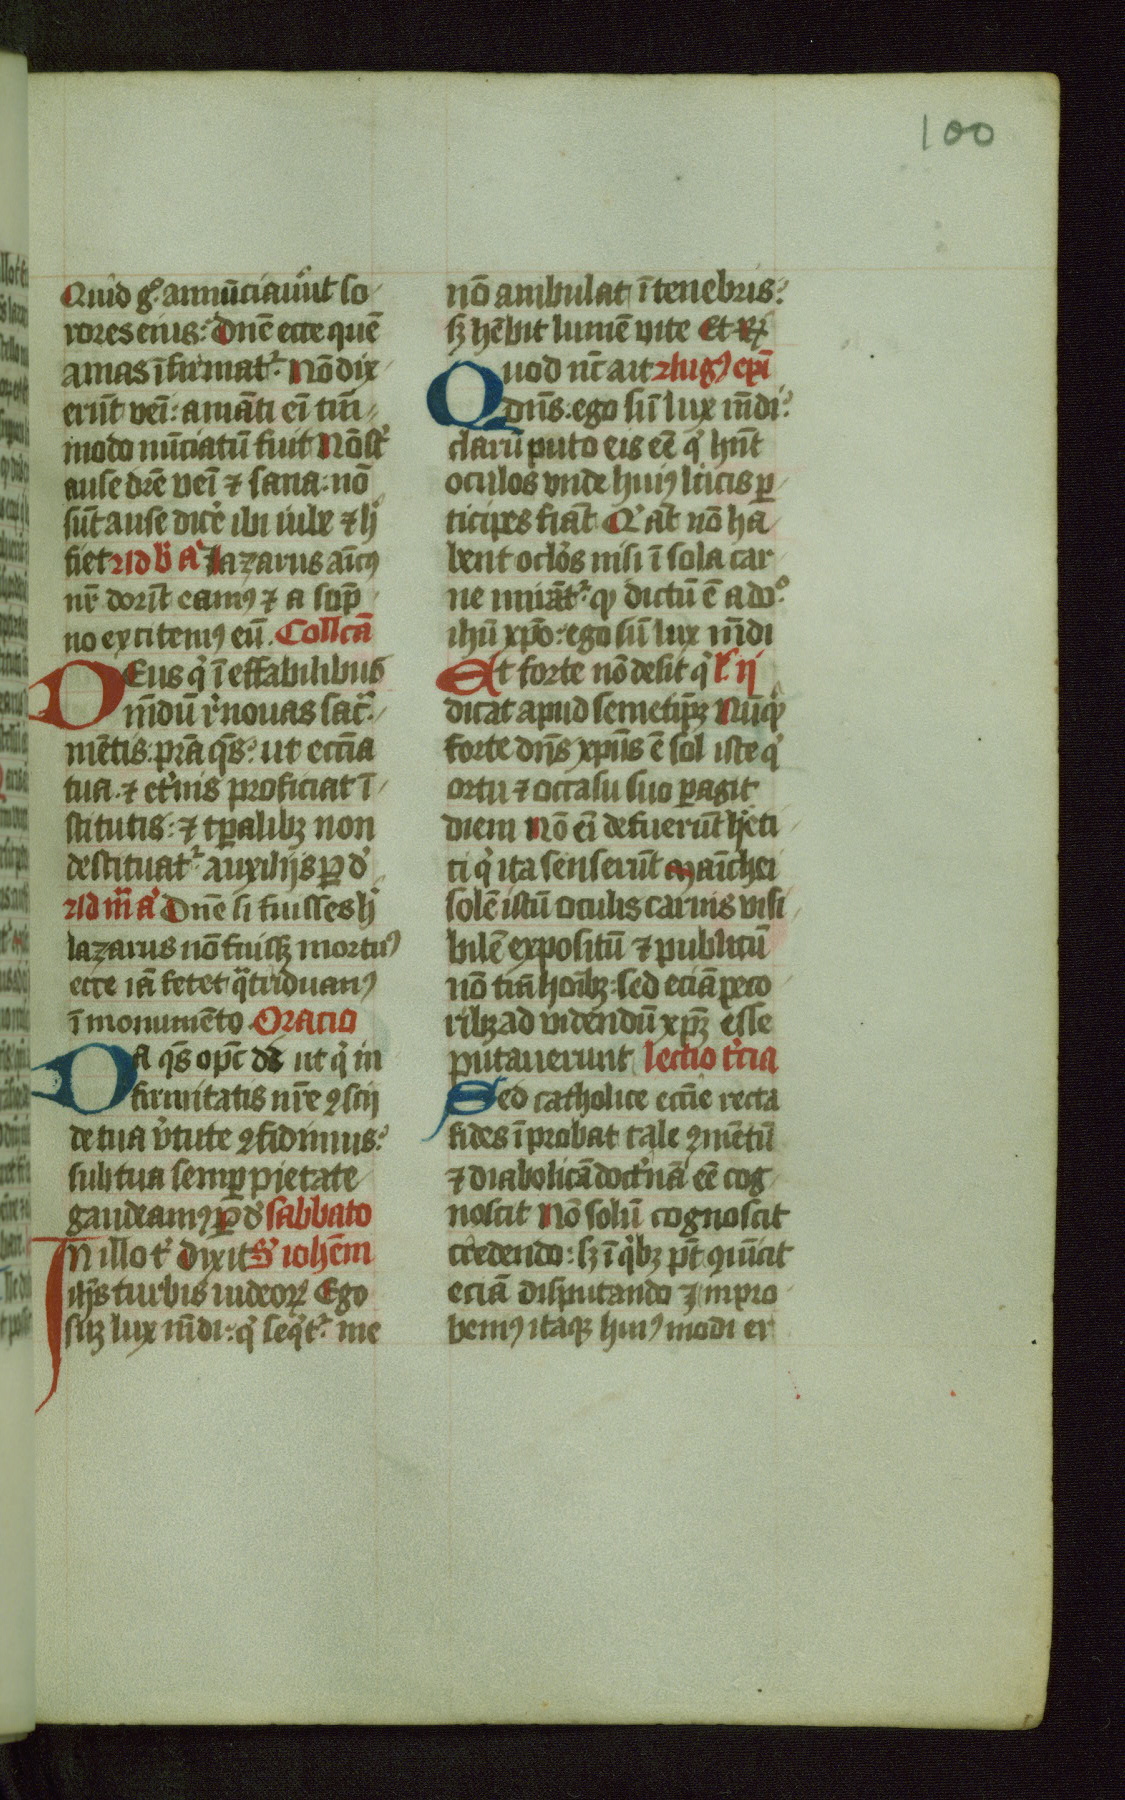 100
Quid g° annūciauer̄t so
rores eius: Dn̄e ecce quē
amas īfirmat᷑. Nō dix
erūt veni: amāti em̄ tm̄
modo nūciatū fuit Nō st̄
ause dicē veni ⁊ sana: nō
sūt ause dicē ibi iube ⁊ h̄
fiet Ad b̄ a Lazarus amicꝰ
nr̄ dormit eamꝰ ⁊ a sōp
no excitemꝰ eū. Collcā
Deus qͥ ī effabilibus
mūdū rēnouas sacr̄
mētis. pr̄a qs̄. ut ecc̄ia
tua. ⁊ et̄nis proficiat ī
stitutis: ⁊ tꝑalibꝫ non
destituat᷑ auxilijs ꝑ d
Ad m̄ a Dn̄e si fuisses h̄
lazarus nō fuissꝫ mortuꝰ
ecce iā fetet qͣtriduanꝰ
ī monumēto Oracio
Da qs̄ opc̄ ds̄ ut qͥ in
firmitatis nr̄e ꝯscij
de tua v̄tute ꝯfidimus:
sub tua semꝑ pietate
gaudeamꝰ ꝑ d sabbato
In illo t̄ dixit S iohēm
ih̄s turbis iudeoꝝ Ego
sūꝫ lux mūdi: qͥ seqͥt᷑ me
nō ambulat ī tenebris:
sꝫ hēbit lumē vite Et R̄
Quod nc̄ ait Augꝰ ep̄i
dn̄s. ego sū lux mūdi:
clarū puto eis eē qͥ hn̄t
oculos vnde huiꝰ lucis ꝑ
ticipes fiāt Qͥ āt nō ha
bent oclōs nisi ī sola car
ne mirāt᷑ qͥ dictū ē a do°
ihū xp̄o: ego sū lux mūdi
Et forte nō desit qͥ l° ij
dicat apud semetip̄ꝫ Nūqͥ
forte dn̄s xp̄us ē sol iste qͥ
ortu ⁊ occasu suo ꝑagit
diem Nō em̄ defuerūt hꝰeti
ti qͥ ita senserūt Manīchei
solē istū oculis carnis visi
bilē expositū ⁊ publicū
nō tm̄ hoībꝫ: sed eciā peco
ribꝫ ad videndū xp̄ꝫ esse
putauerunt lectio t̄cia
Sed catholice ecc̄ie recta
fides īprobat tale ꝯmētū
⁊ diabolicā doct̄nā eē cog
noscit Nō solū cognoscit
credendo: sꝫ ī qͥbꝫ pt̄ ꝯuīcit
eciā disputando ⁊ inpro
bemꝰ itaqꝫ huiꝰmodi er